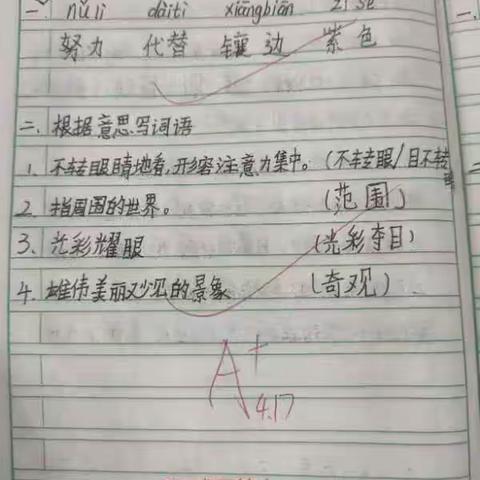 一、nǔ lì dài tì xiāng biān zǐ sè
努力 代替 镶边 紫色
二、根据意思写词语
1、不转眼睛地看,形容注意力集中。(不转眼/目不转睛
2、指周围的世界。(范围)
3、光彩耀眼 (光彩夺目)
4、雄伟美丽又少见的景象 (奇观)
A+
4.17